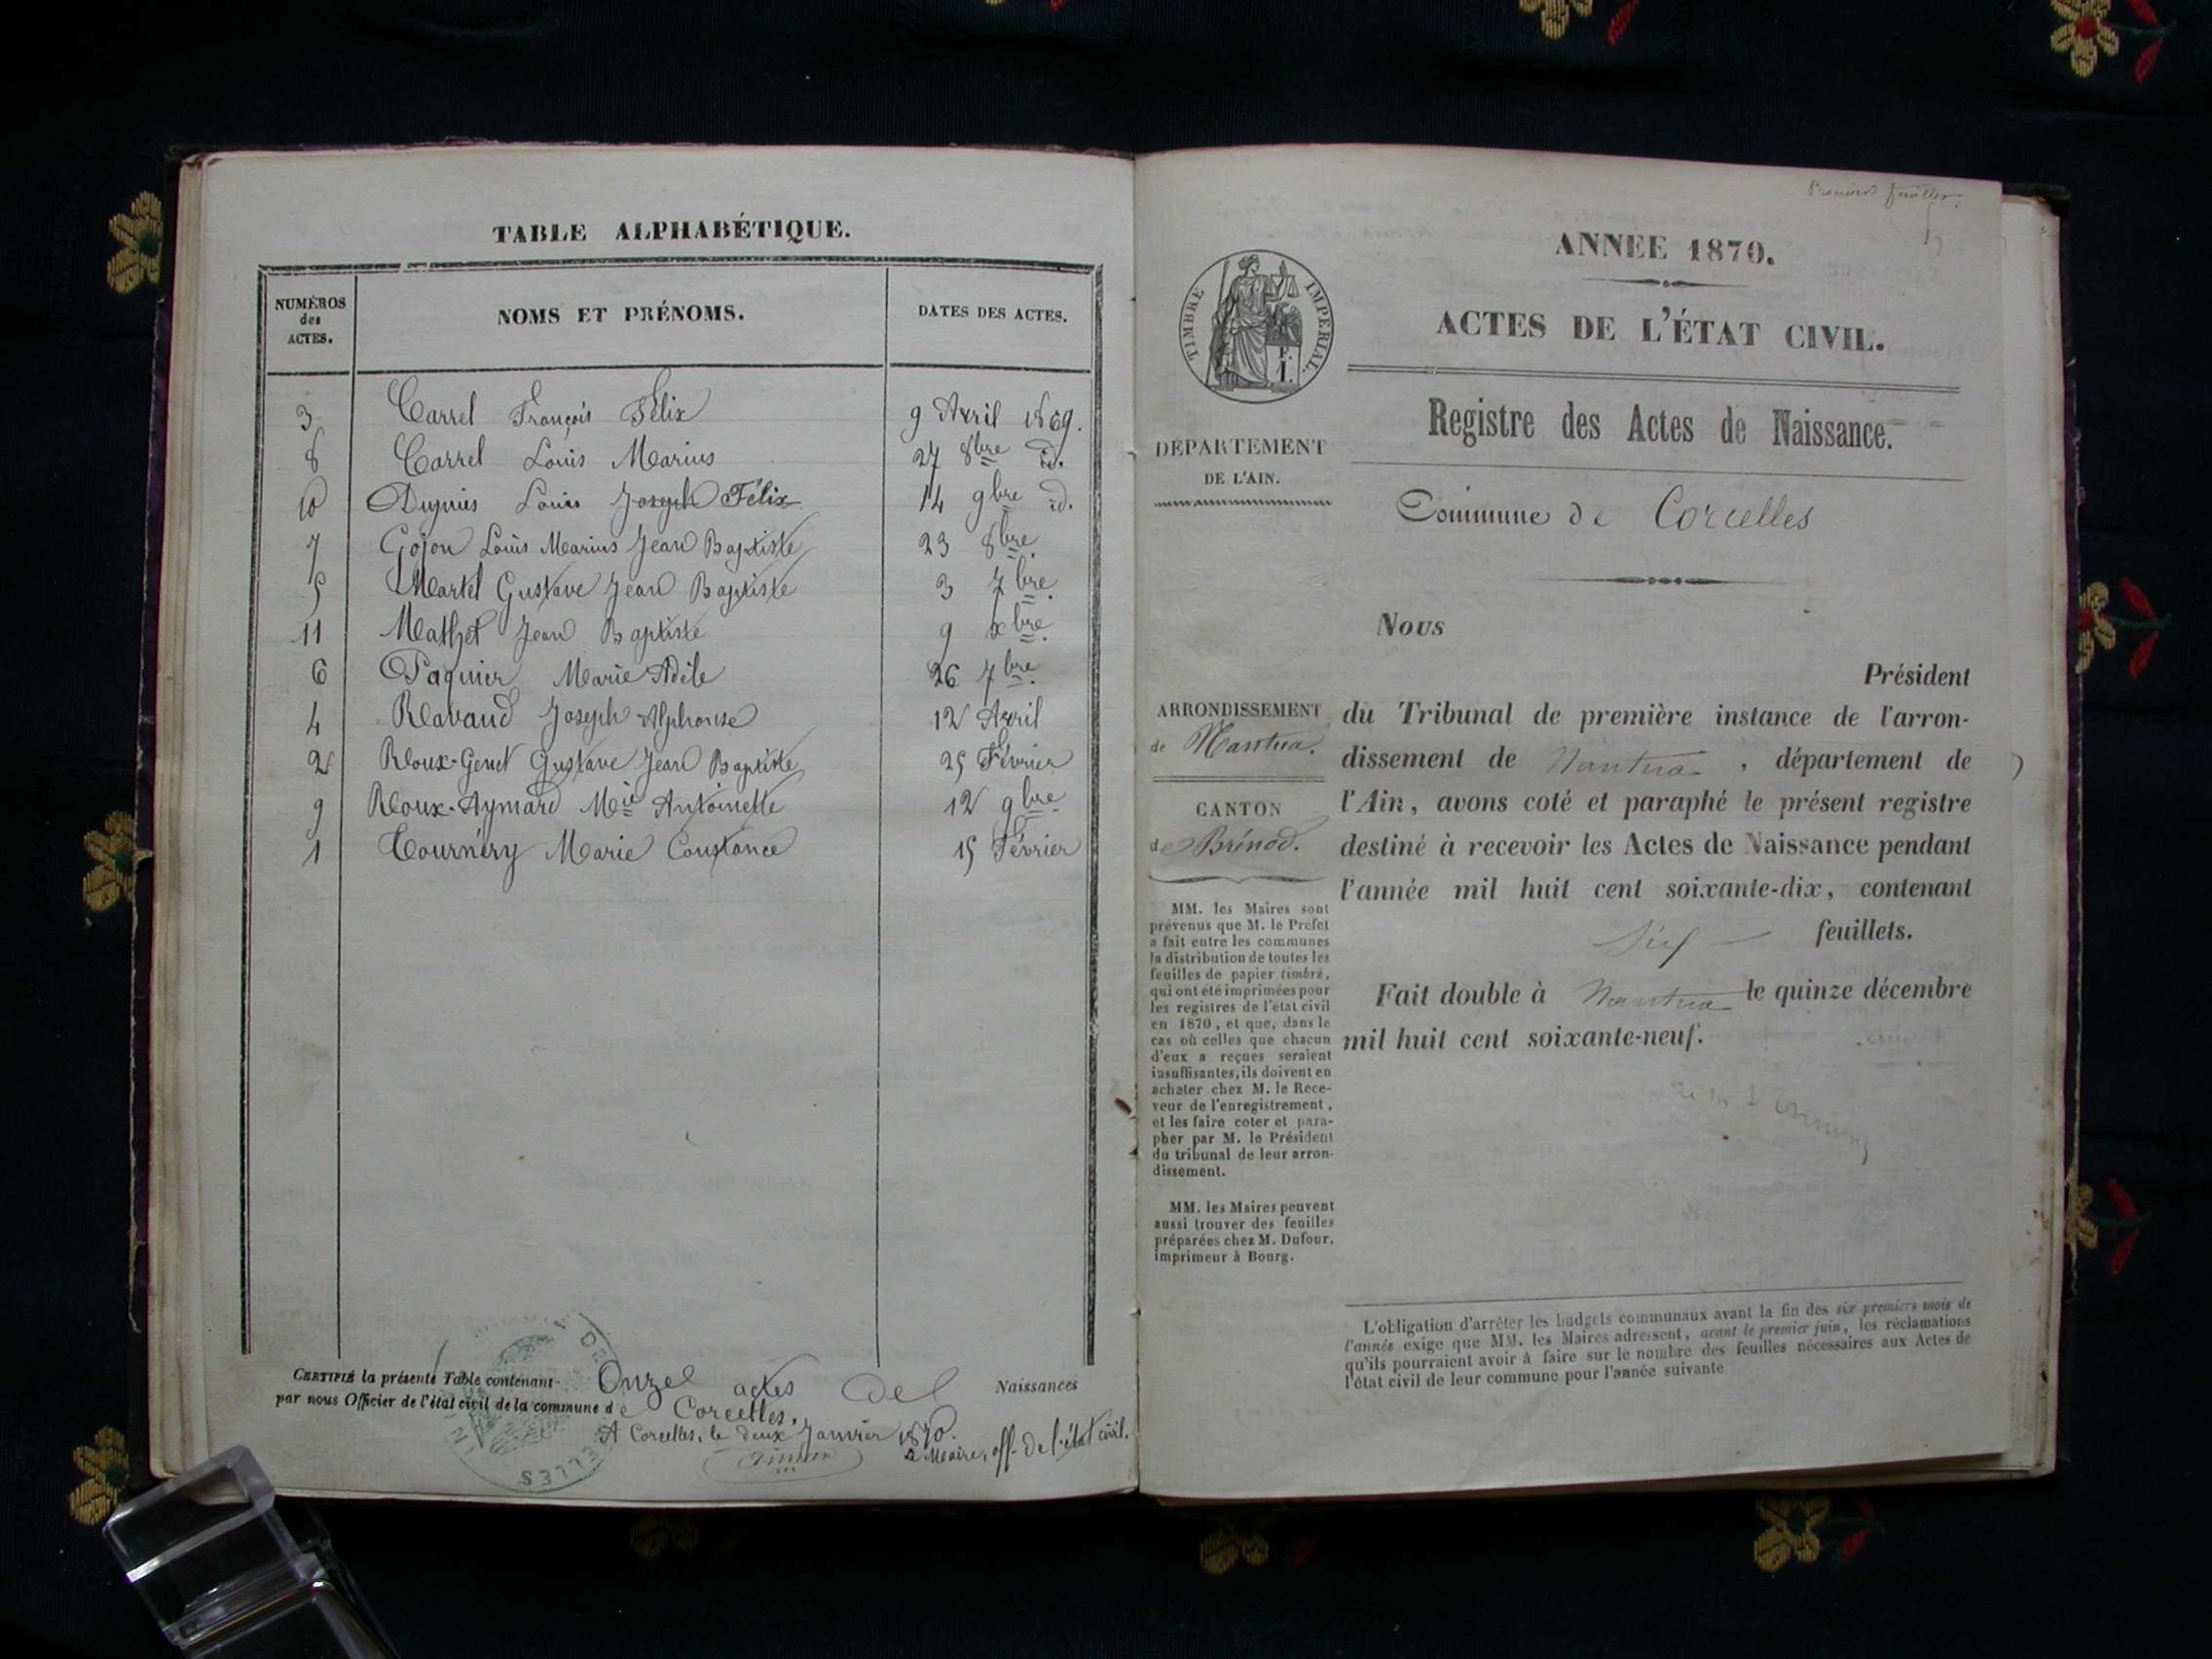 TABLE ALPHABÉTIQUE.
NUMÉROS des ACTES.
NOMS ET PRÉNOMS.
DATES DES ACTES.
3 Carrel François Félix 9 Avril 1869.
8 Carrel Louis Marius 27 8bre id.
10 Dupuis Louis Joseph Félix 14 9bre id.
7 Gojon Louis Marius Jean Baptiste 23 8bre.
5 Martel Gustave Jean Baptiste 3 7bre.
11 Mathet Jean Baptiste 9 xbre.
6 Paquier Marie Adèle 26 7bre.
4 Ravaud Joseph Alphonse 12 Avril
2 Roux-Genet Gustave Jean Baptiste 25 Février
9 Roux-Aymard Mie Antoinette 12 9bre
1 Tournéry Marie Constance 15 Février
CERTIFIÉ la présente Table contenant Onze actes de Naissances
par nous Officier de l'état civil de la commune de Corcelles.
A Corcelles, le deux Janvier 1870.
Le Maire, off. de l'état civil.
Premier feuillet.
ANNÉE 1870.
TIMBRE IMPERIAL.
E. I.
ACTES DE L'ÉTAT CIVIL.
Registre des Actes de Naissance.
DÉPARTEMENT
DE L'AIN.
Commune de Corcelles
Nous
Président
ARRONDISSEMENT
de Nantua.
CANTON
de Brénod.
du Tribunal de première instance de l'arron-
dissement de Nantua, département de
l'Ain, avons coté et paraphé le présent registre
destiné à recevoir les Actes de Naissance pendant
l'année mil huit cent soixante-dix, contenant
feuillets.
Fait double à Nantua le quinze décembre
mil huit cent soixante-neuf.
MM. les Maires sont
prévenus que M. le Préfet
a fait entre les communes
la distribution de toutes les
feuilles de papier timbré,
qui ont été imprimées pour
les registres de l'état civil
en 1870, et que, dans le
cas où celles que chacun
d'eux a reçues seraient
insuffisantes, ils doivent en
acheter chez M. le Rece-
veur de l'enregistrement,
et les faire coter et para-
pher par M. le Président
du tribunal de leur arron-
dissement.
MM. les Maires peuvent
aussi trouver des feuilles
préparées chez M. Dufour,
imprimeur à Bourg.
L'obligation d'arrêter les budgets communaux avant la fin des six premiers mois de
l'année exige que MM. les Maires adressent, avant le premier juin, les réclamations
qu'ils pourraient avoir à faire sur le nombre des feuilles nécessaires aux Actes de
l'état civil de leur commune pour l'année suivante